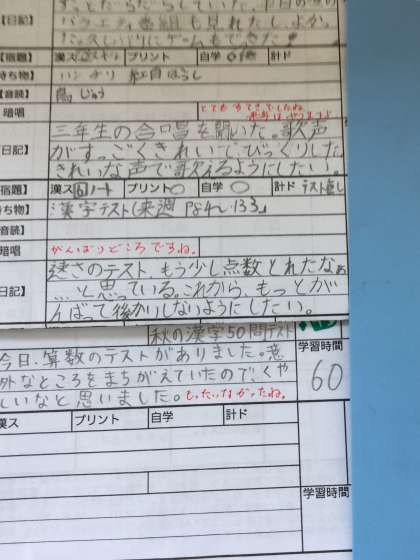 ずっとだらだらしていた。平日の
【日記】
バラエティ番組も見れたし、よか
【宿題】 漢ス プリント 自学 計ド
持ち物】 ハンガリ 紅白ぼうし
【音読】
暗唱
三年生の合唱を聞いた。歌声
日記】
がすっごくきれいでびっくりした
きれいな声で歌えるようにしたい。
宿題】 漢ス 6 ノート プリント○ 自学 ○ 計ド テスト直し
ち物】 漢字テスト(来週 P84~133」
音読】
暗唱 がんばりどころですね。
速さのテスト、もう少し点数とれたなぁ
日記】
…と思っている。これから、もっとが
んばって後かいしないようにしたい。
秋の漢字50問テスト
学習時間
今日、算数のテストがありました。意
外なところをまちがえていたので、くや
60
しいなと思いました。もったいなかったね。
漢ス プリント 自学 計ド
学習時間